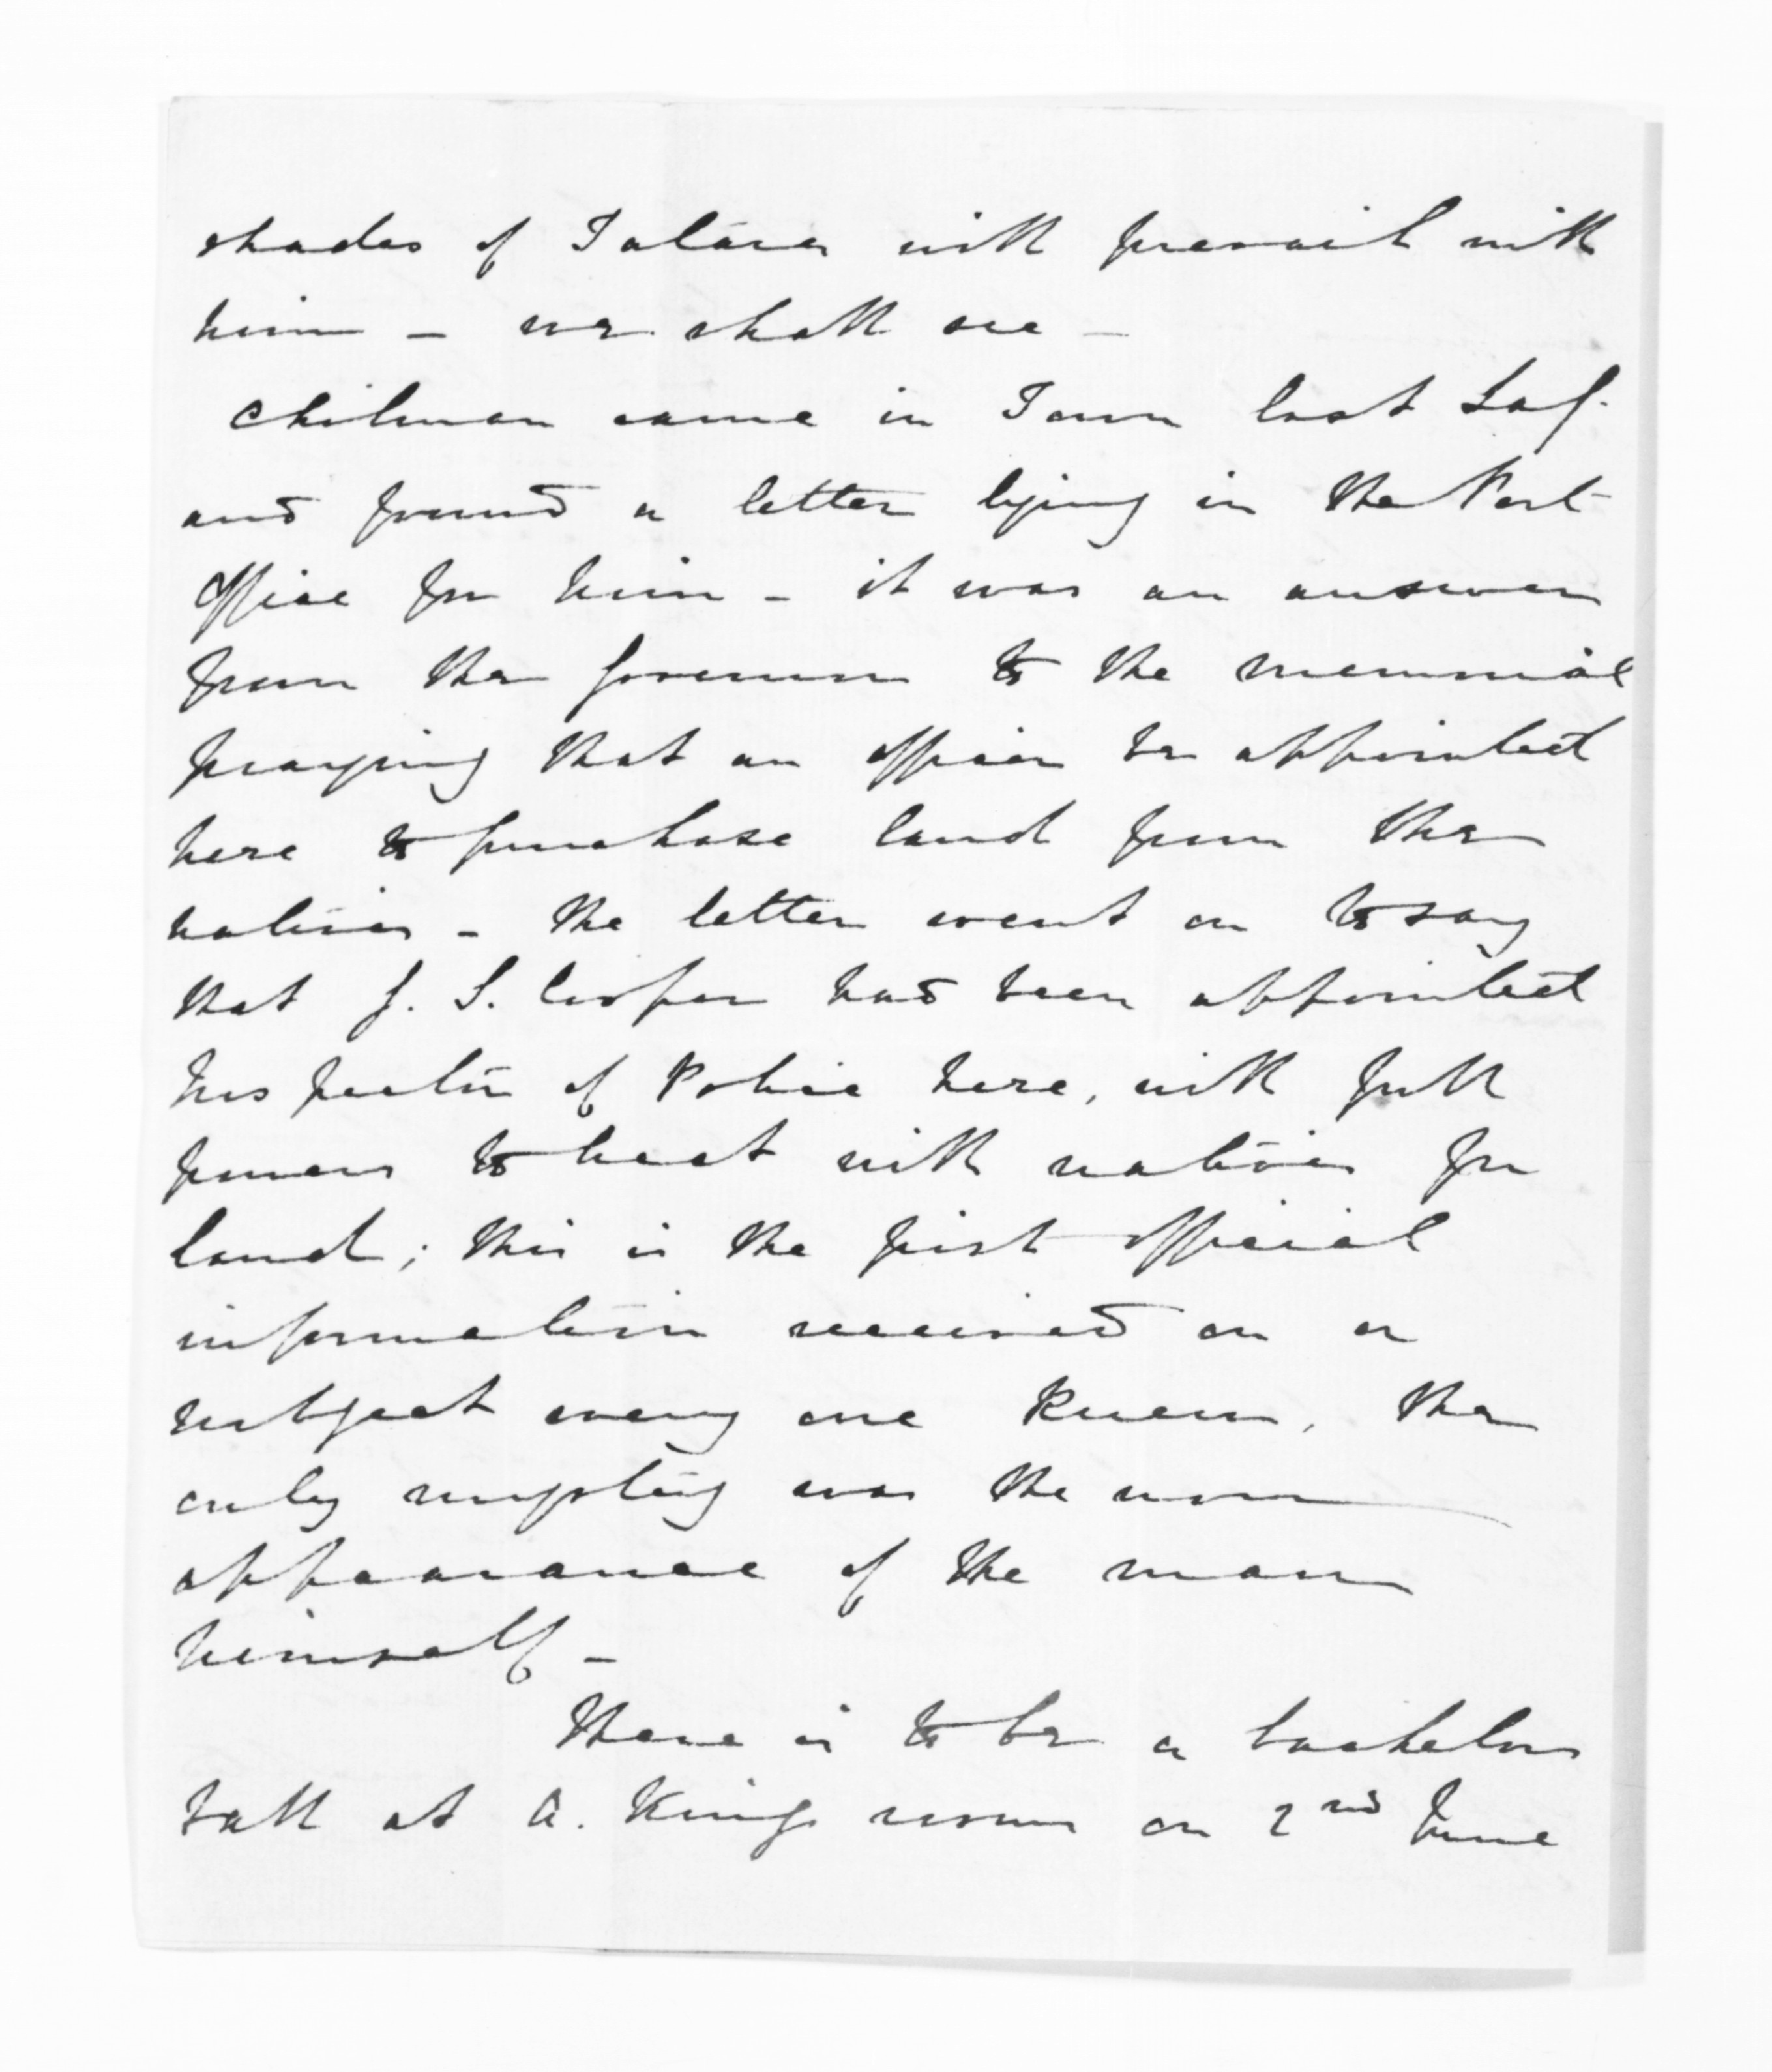 shades of Tatara will prevail with
him - we shall see -
Chilman came in Town last Saty.
and found a letter lying in the Post
Office for him - it was an answer
from the Governor to the memorial
praying that an officer be appointed
here to purchase land from the
natives - the letter went on to say
that G. S. Cooper had been appointed
Inspector of Police here, with full
powers to treat with natives for
land; this is the first official
information received on a
subject every one knew, the
only mystery was the non
appearance of the man
himself -
There is to be a bachelors
ball at A. Kings room on 2nd June